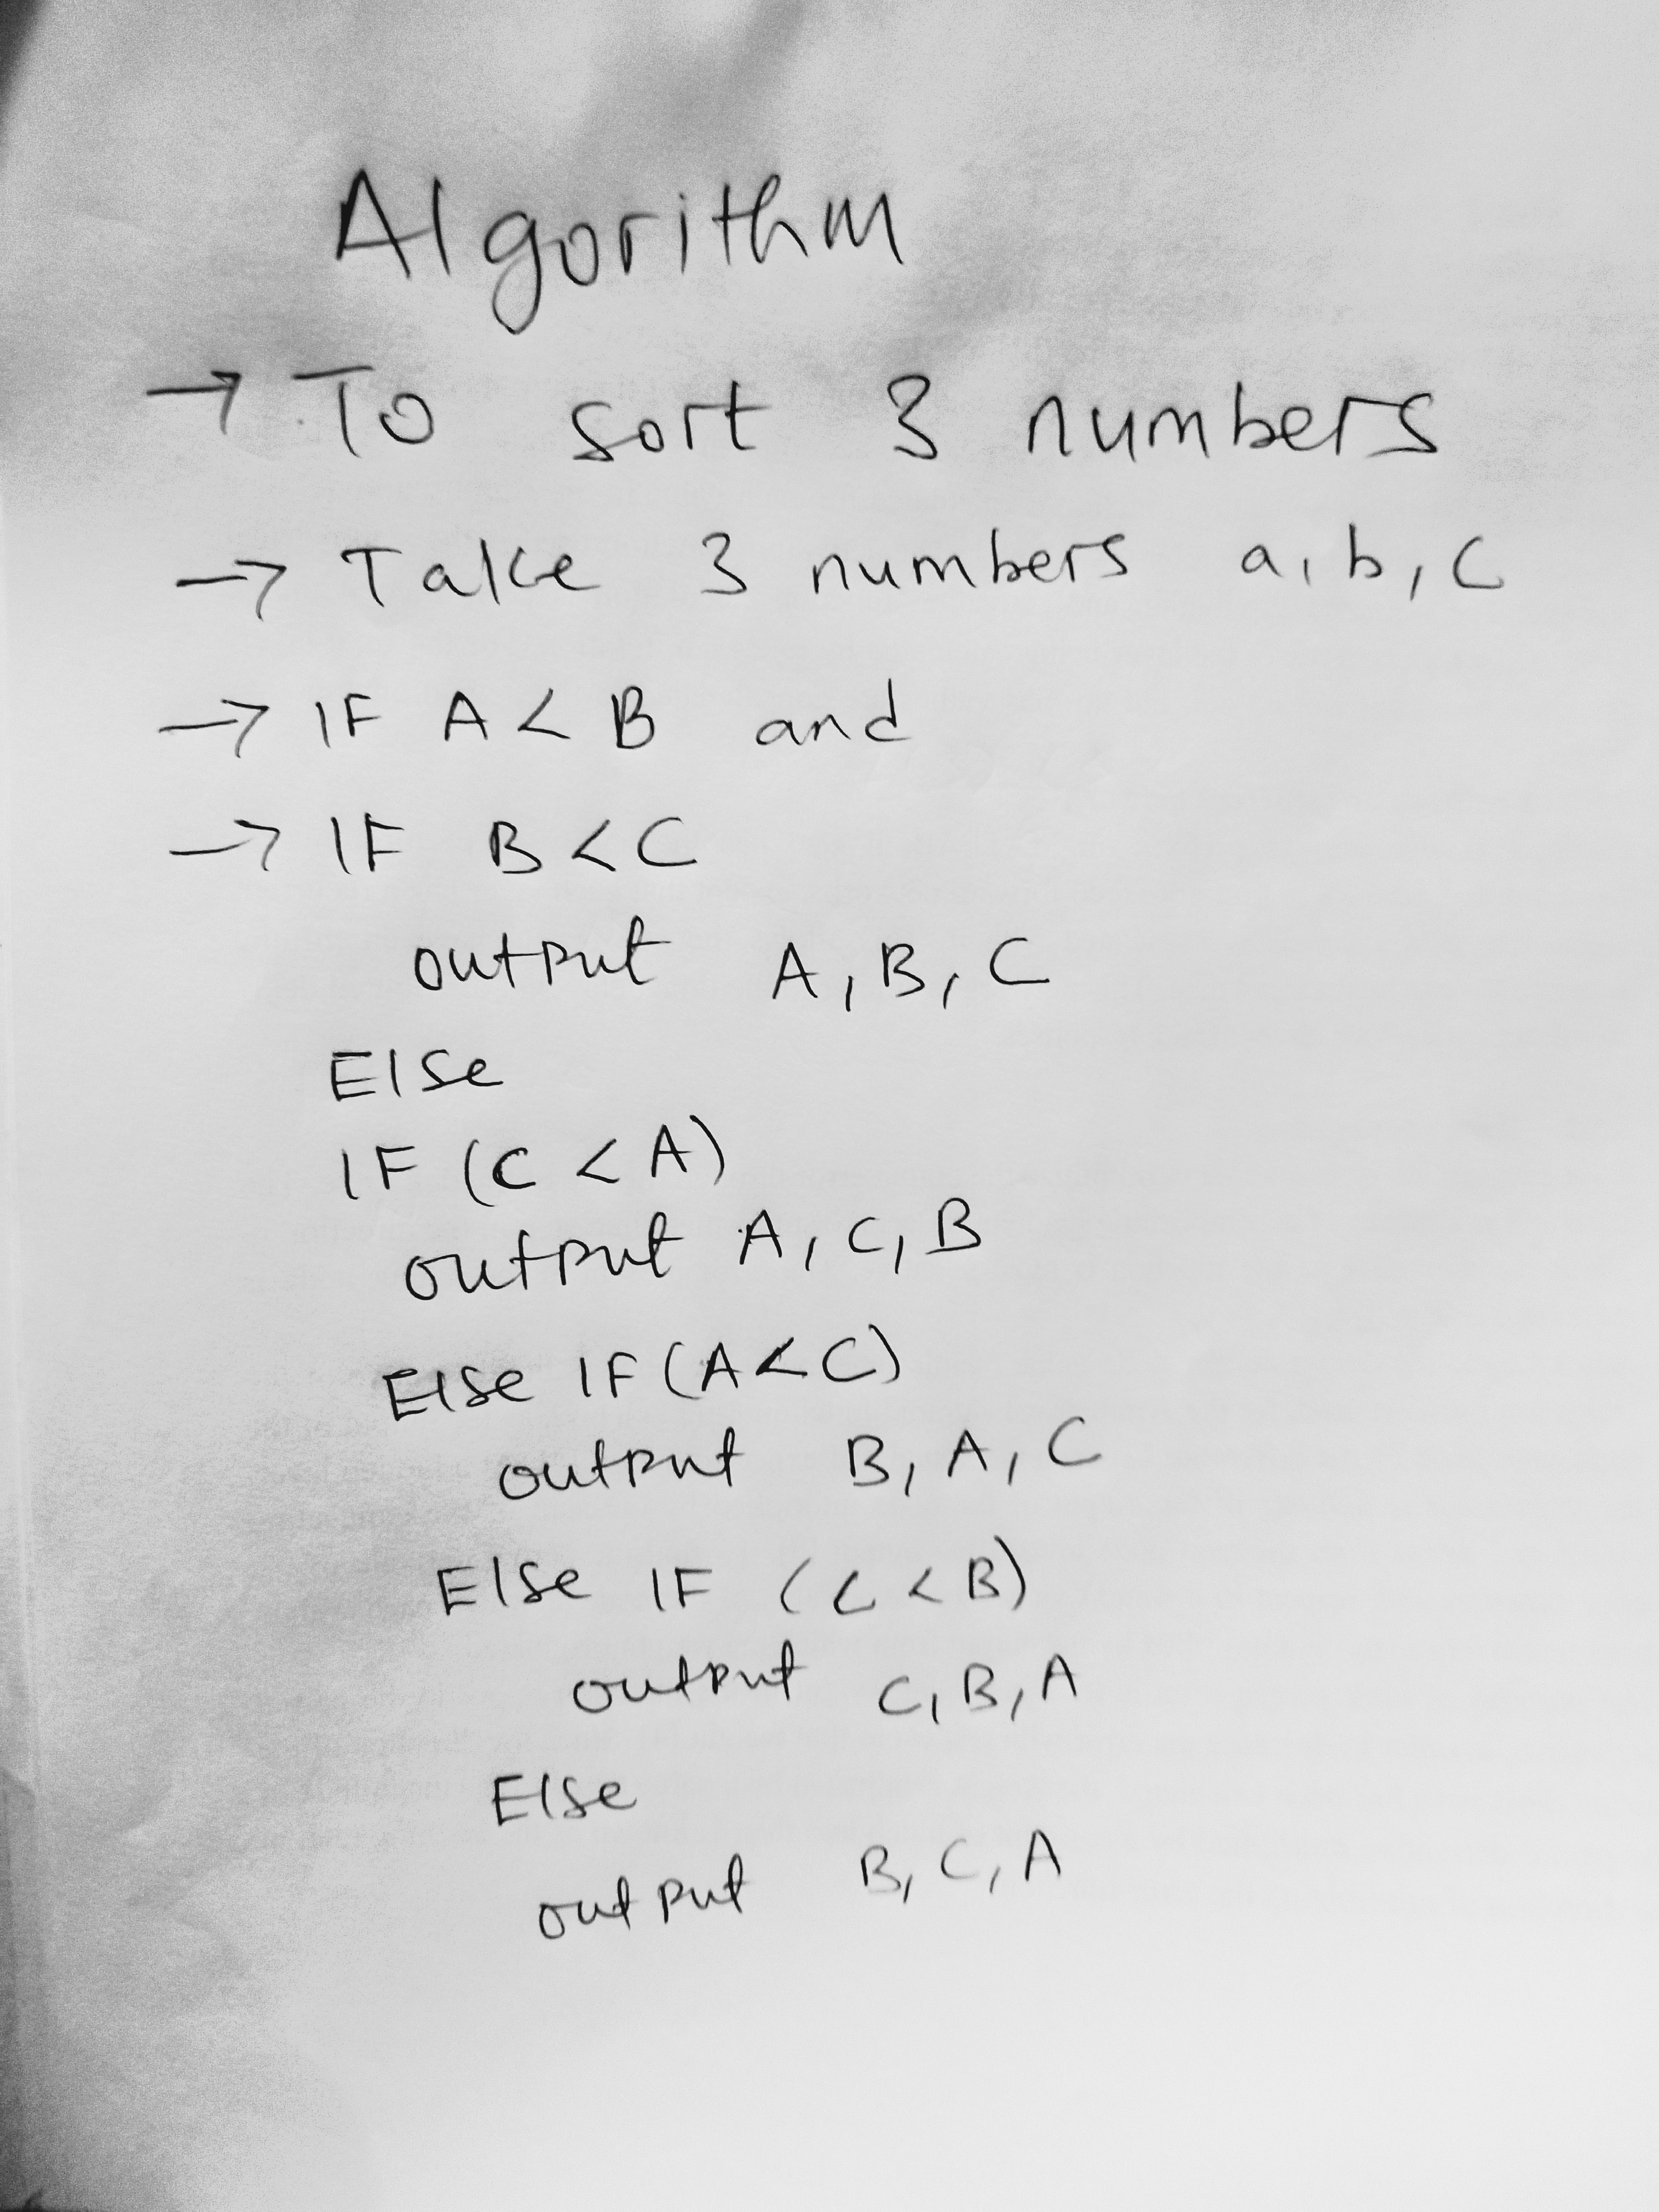 Algorithm
→ To sort 3 numbers
→ Take 3 numbers a, b, c
→ IF A < B and
→ IF B < C
output A, B, C
Else
IF (C < A)
output A, C, B
Else IF (A < C)
output B, A, C
Else IF (C < B)
output C, B, A
Else
output B, C, A